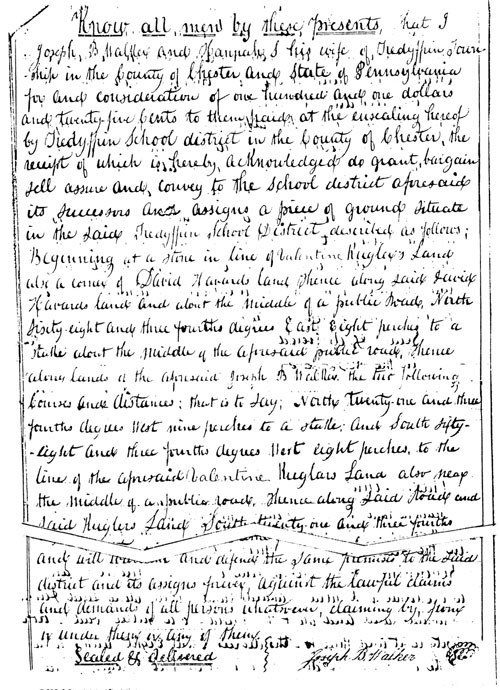 Know all men by these Presents, that I
Joseph, B Walker and Hannah, I his wife of, Tredyffrin Town-
ship in the County of Chester and State of Pennsylvania
for and consideration of one hundred and one dollars
and twenty-five Cents to them, paid, at the ensealing hereof
by Tredyffrin School district in the County of Chester, the
receipt of which is, hereby, acknowledged do grant, bargain
sell assure and, convey to the School district aforesaid
its successors and, assigns a piece of ground situate
in the said, Tredyffrin School District, described as follows;
Beginning at a stone in line of Valentine Kugler's Land
also a corner of David Havards land thence along said David
Havards land and about the middle of a public road, North
Sixty-eight and three fourths degrees East, Eight perches to a
stake about the middle of the aforesaid public road, thence
along lands of the aforesaid Joseph B Walker the two following
Courses and distances; that is to say; North twenty-one and three
fourths degrees West nine perches to a stake; and South sixty-
-eight and three fourths degrees West eight perches, to the
line of the aforesaid Valentine Kuglars Land also near
the middle of a public road, thence along said Road and
said Kuglers Land South twenty-one and three fourths
and will and defend the same premises to the said
district and its assigns against the lawful claims
and demands of all persons whatsoever, claiming by, from
or under them or any of them.
Sealed & delivered
Joseph B. Walker